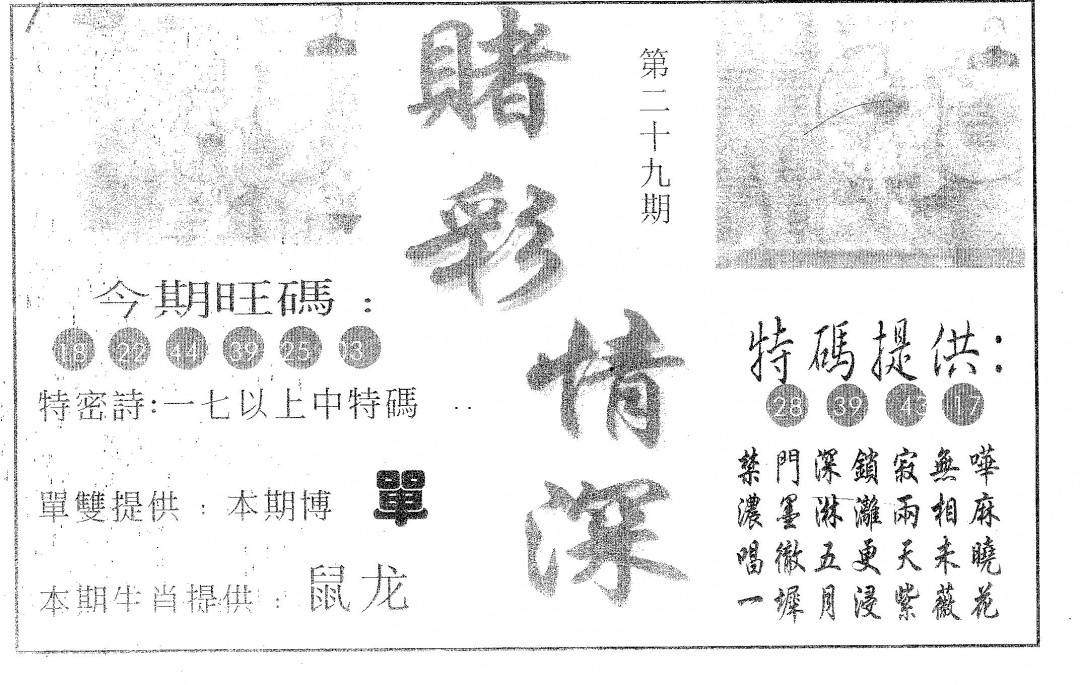 賭彩情深
第二十九期
今期旺碼：
18 22 44 39 25 03
特密詩：一七以上中特碼
單雙提供：本期博 單
本期生肖提供：鼠龙
特碼提供：
28 39 43 17
禁門深鎖寂無嘩
濃墨淋灕兩相麻
唱徹五更天未曉
一墀月浸紫薇花